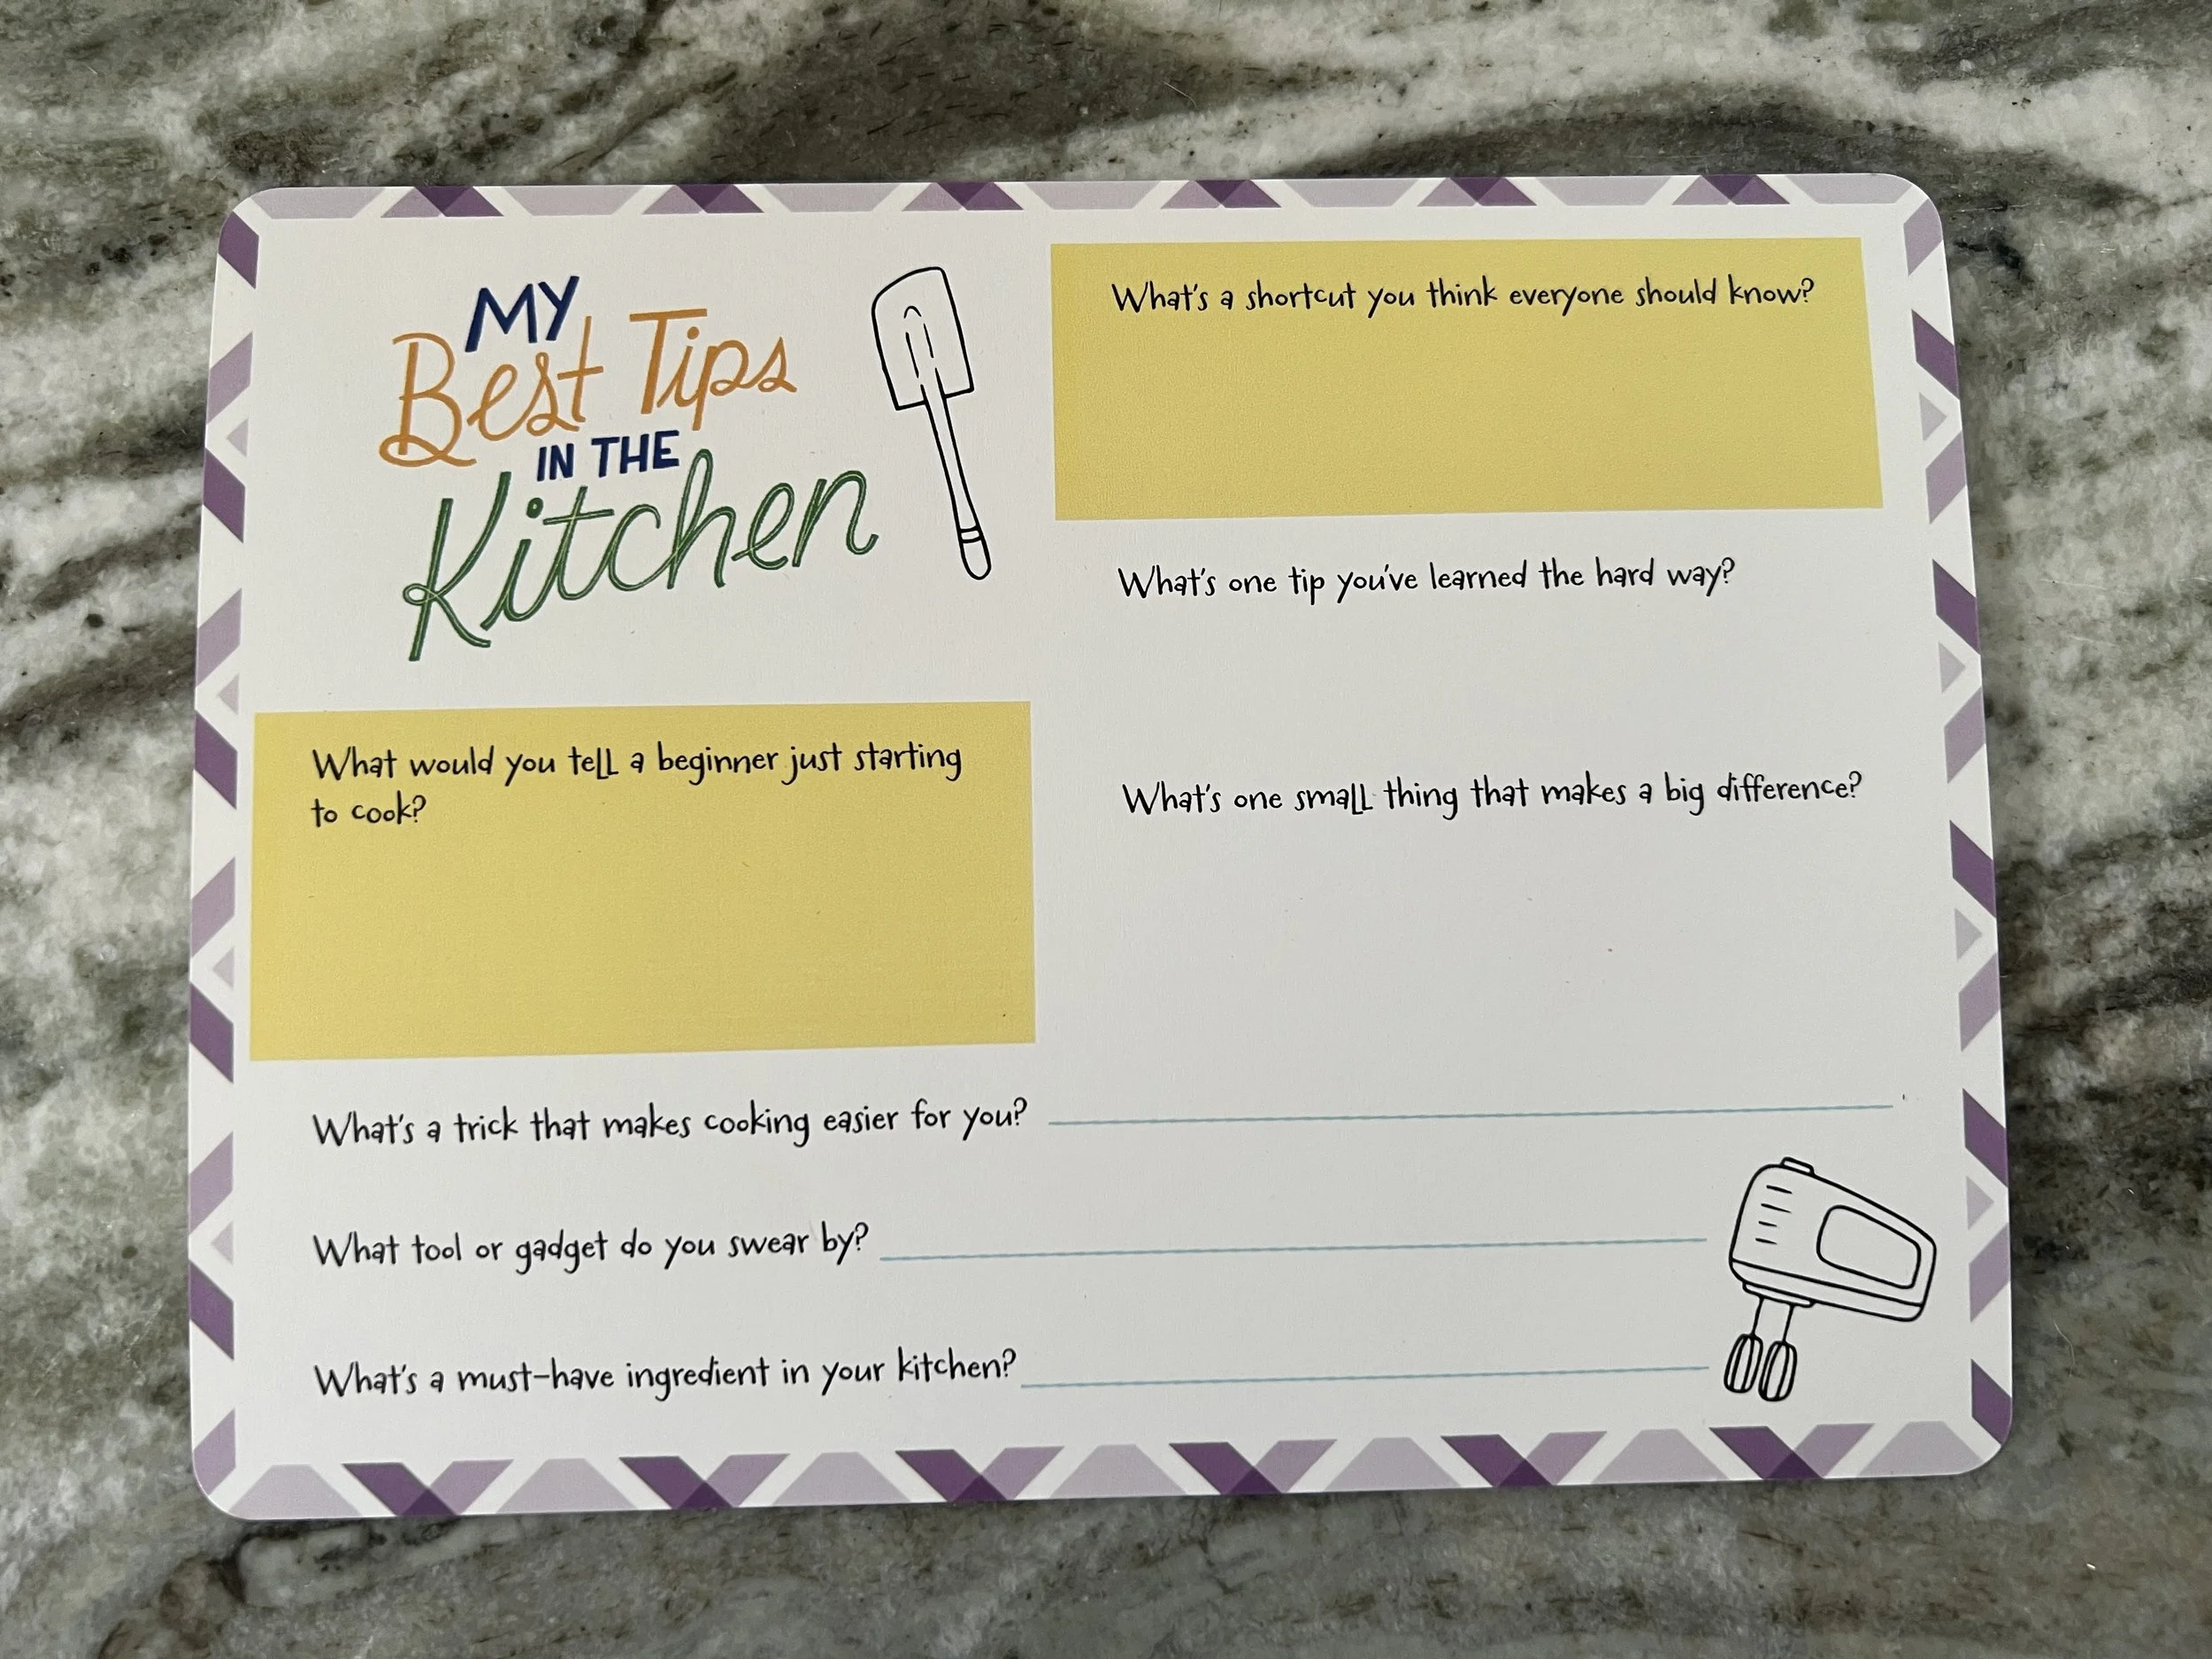 MY
Best Tips
IN THE
Kitchen
What would you tell a beginner just starting
to cook?
What's a shortcut you think everyone should know?
What's one tip you've learned the hard way?
What's one small thing that makes a big difference?
What's a trick that makes cooking easier for you?
What tool or gadget do you swear by?
What's a must-have ingredient in your kitchen?